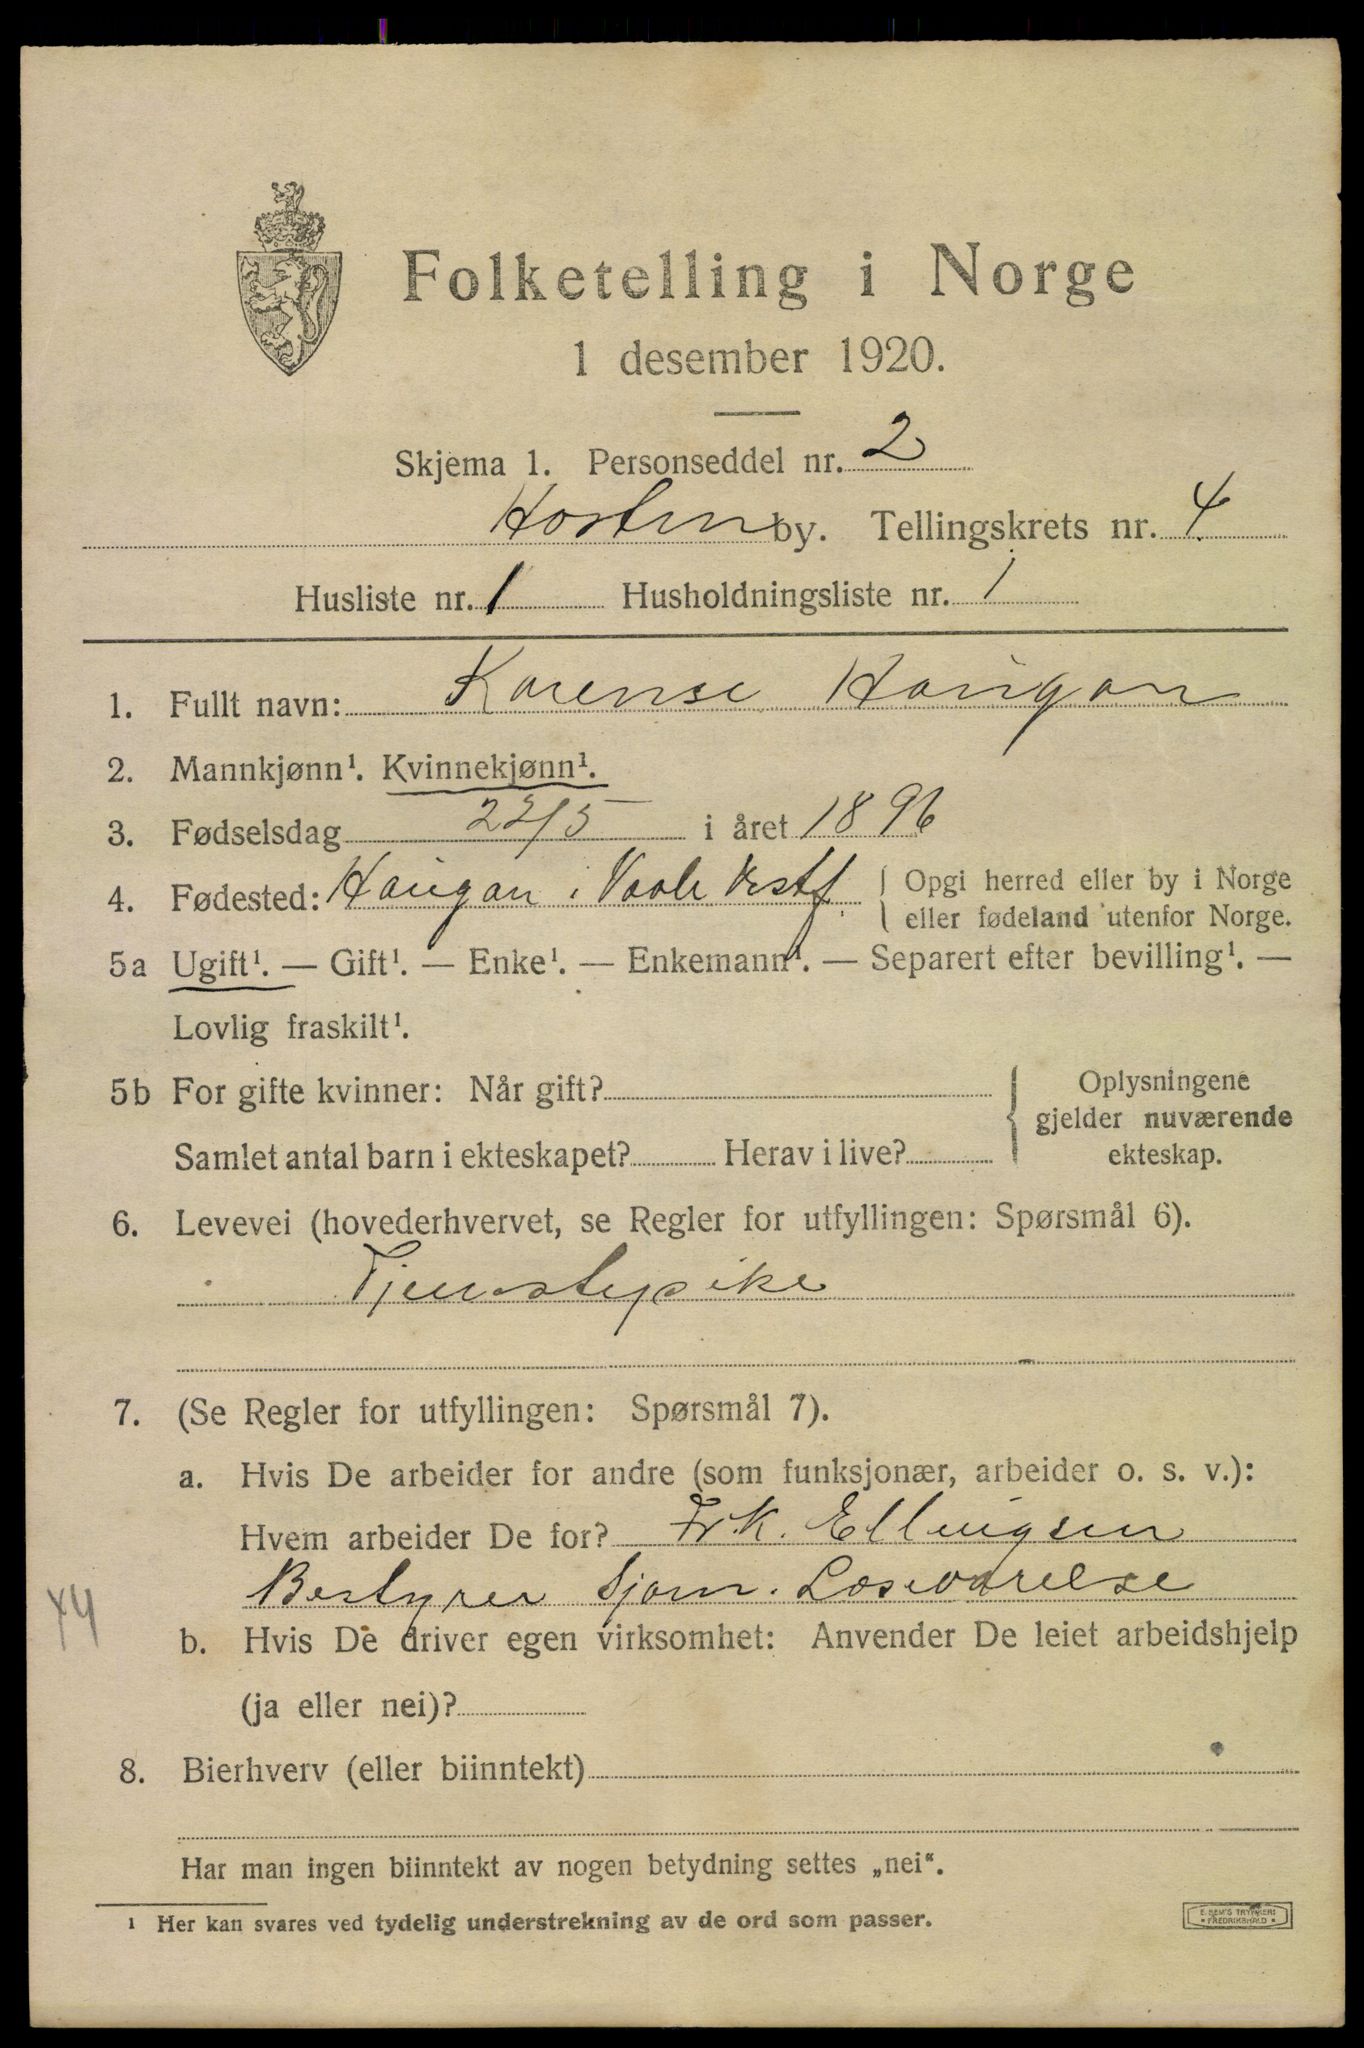 Folketelling i Norge
1 desember 1920.
Skjema 1. Personseddel nr. 2
Horten by. Tellingskrets nr. 4
Husliste nr. 1 Husholdningsliste nr. 1
1. Fullt navn: Karense Haugan
2. Mannkjønn¹. Kvinnekjønn¹.
3. Fødselsdag 22/5 i året 1896
4. Fødested: Haugan i Vaale Vestf. Opgi herred eller by i Norge
eller fødeland utenfor Norge.
5a Ugift¹. — Gift¹. — Enke¹. — Enkemann¹. — Separert efter bevilling¹. —
Lovlig fraskilt¹.
5b For gifte kvinner: Når gift? Oplysningene
gjelder nuværende
Samlet antal barn i ekteskapet? Herav i live? ekteskap.
6. Levevei (hovederhvervet, se Regler for utfyllingen: Spørsmål 6).
Tjenestepike
7. (Se Regler for utfyllingen: Spørsmål 7).
a. Hvis De arbeider for andre (som funksjonær, arbeider o. s. v.):
Hvem arbeider De for? Frk. Ellingsen
Bestyrer Sjøm. Læseværelse
X4
b. Hvis De driver egen virksomhet: Anvender De leiet arbeidshjelp
(ja eller nei)?
8. Bierhverv (eller biinntekt)
Har man ingen biinntekt av nogen betydning settes „nei“.
¹ Her kan svares ved tydelig understrekning av de ord som passer.
E. SEM'S TRYKKERI
FREDRIKSHALD